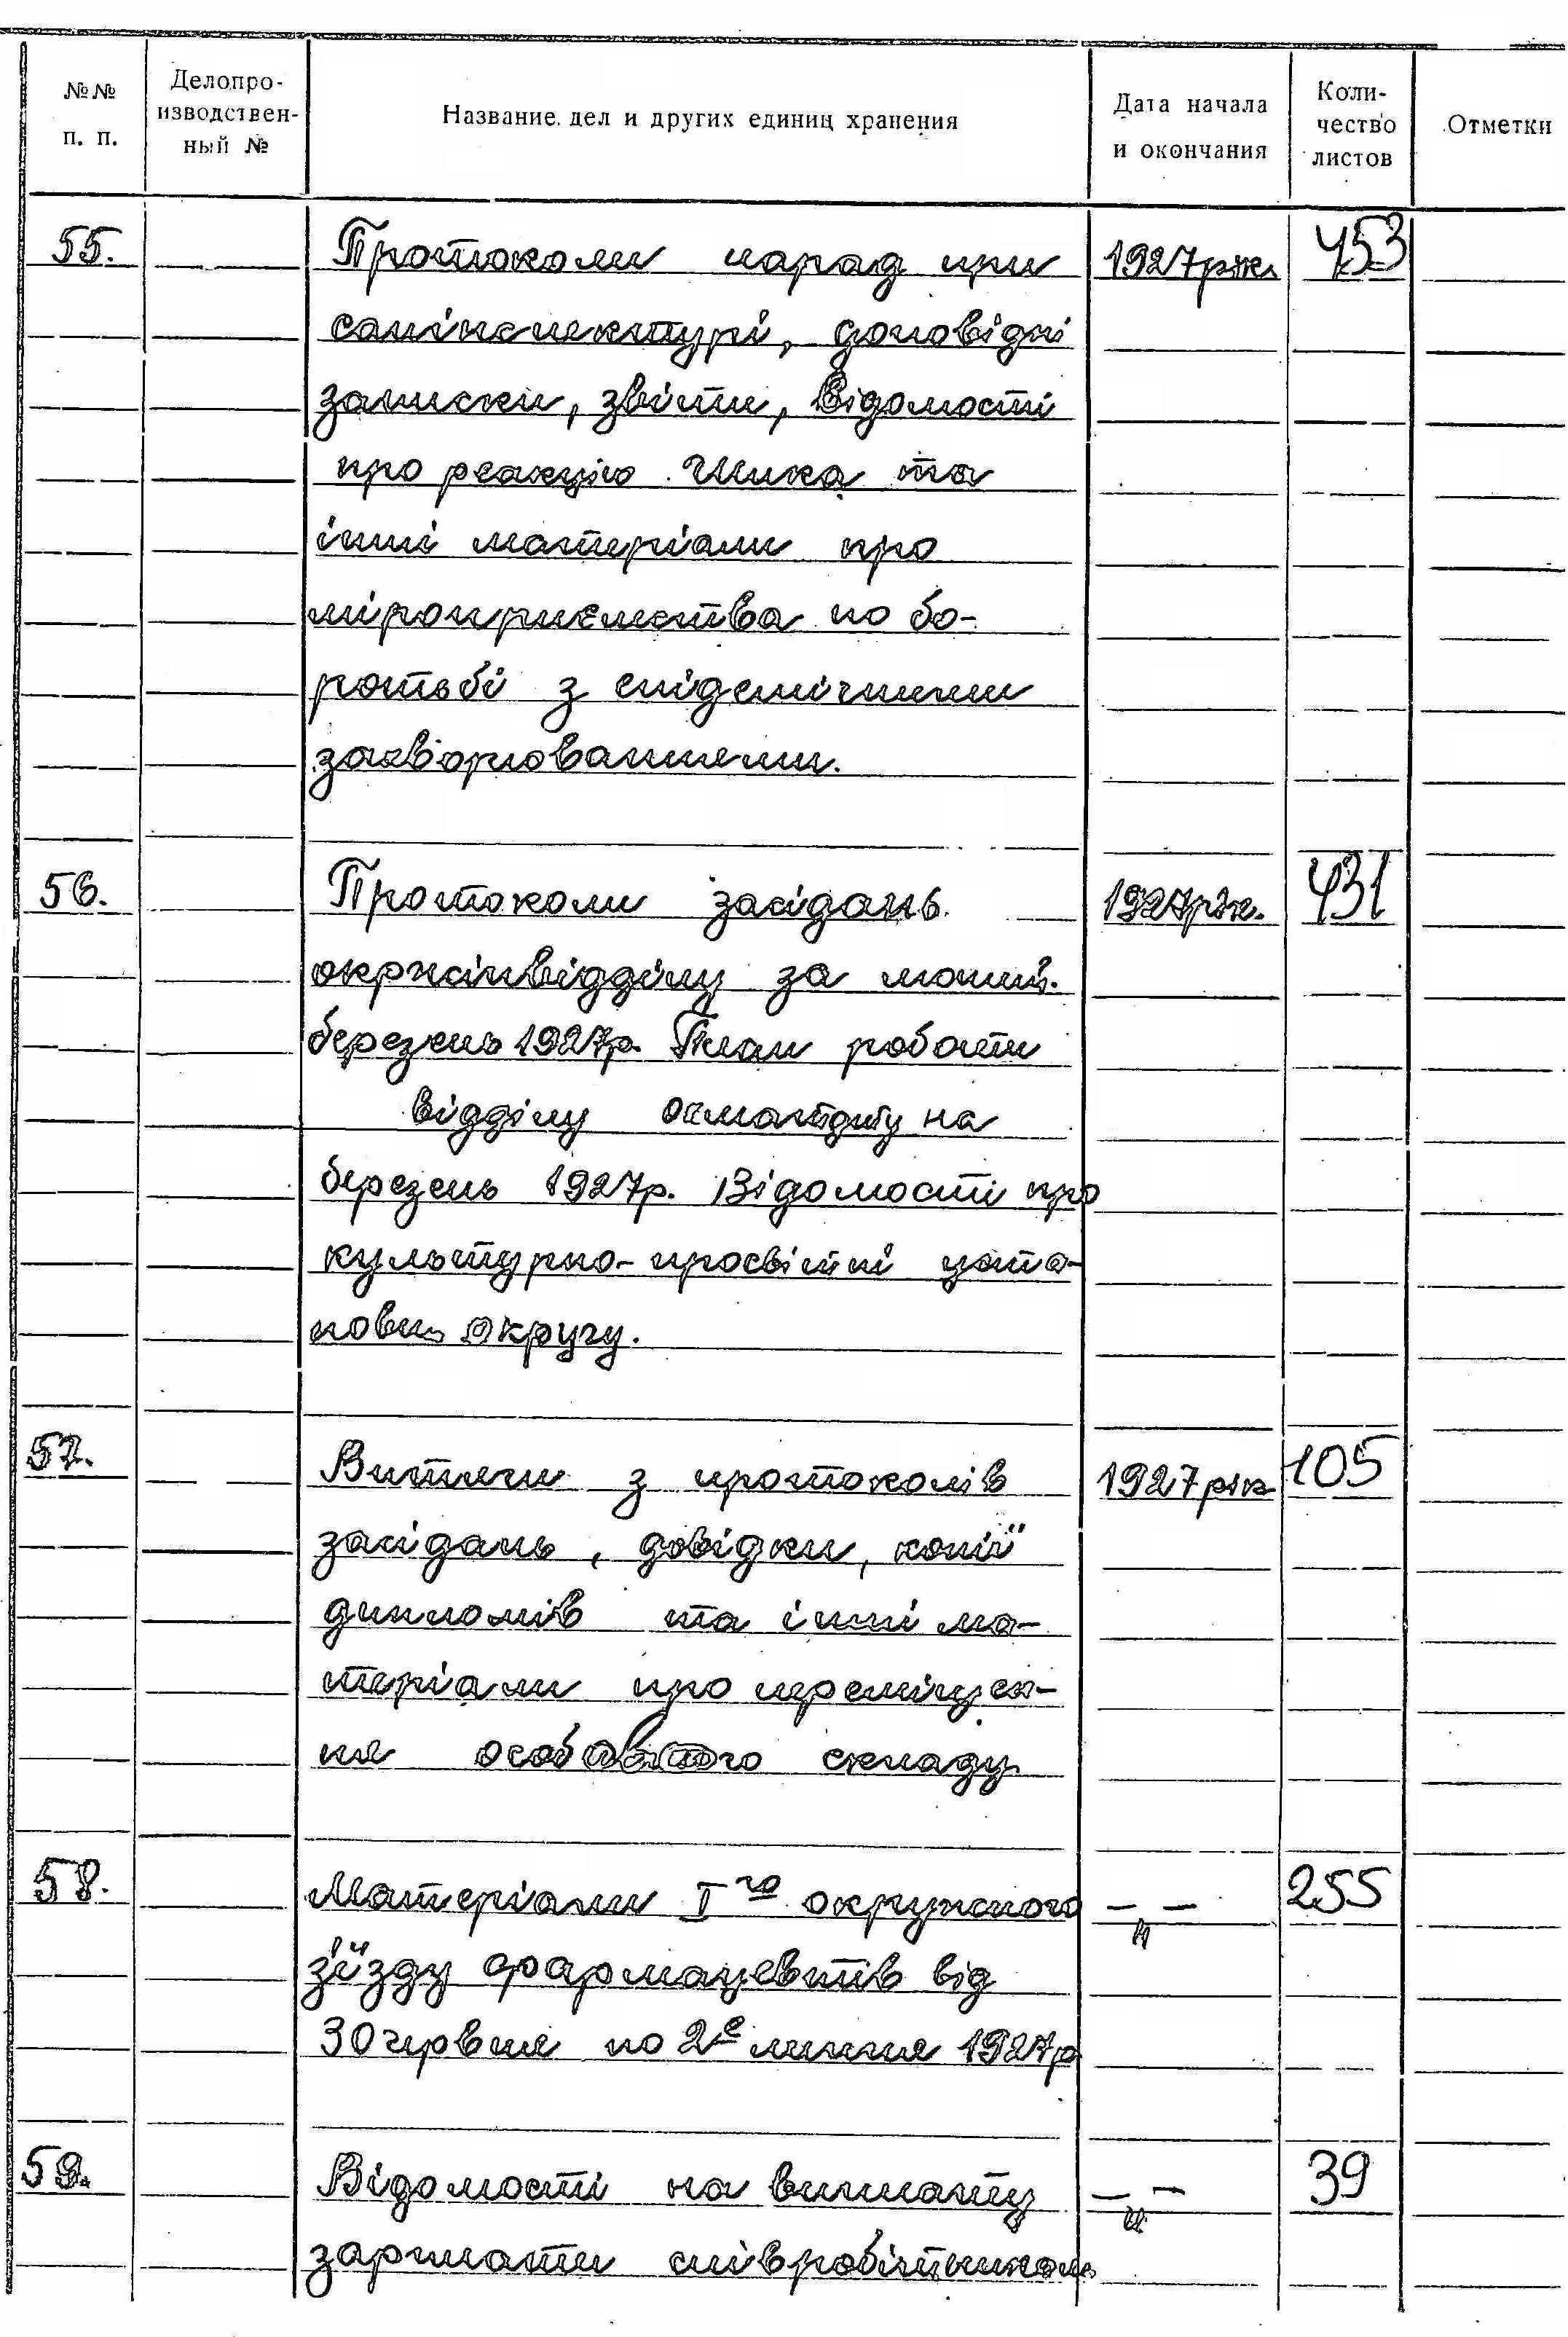 №№ п. п.
Делопро-изводствен-ный №
Название дел и других единиц хранения
Дата начала и окончания
Коли-чество листов
Отметки
55. Протоколи нарад при 1927рік 453
санінспектурі, доповідні
записки, звіти, Відомості
про реакцію Шика та
інші матеріали про
міроприємства по бо-
ротьбі з епідемічними
захворюваннями.
56. Протоколи засідань 1927рік. 431
окрздіввідділу за
березень 1927р. План роботи
відділу на
березень 1927р. Відомості про
культурно-просвітні уста-
нови округу.
57. Витяги з протоколів 1927 рік 105
засідань, довідки, копії
дипломів та інші ма-
теріали про переміщен-
ня особового складу
58. Матеріали I го окружного —„— 255
з'їзду фармацевтів від
30 червня по 2е липня 1927р
59. Відомості на виплату —„— 39
зарплати співробітникам